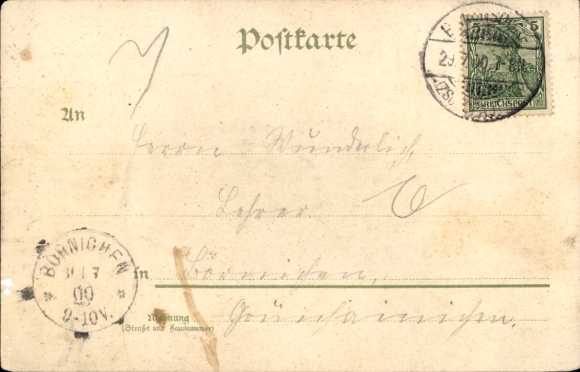 Postkarte
5
29 7 00 7-8N
REICHSPOST
An
Herrn Wunderlich,
Lehrer
BÖRNICHEN
7
00
9-10V.
in
Börnichen,
Wohnung
(Straße und Hausnummer)
Grünhainichen.